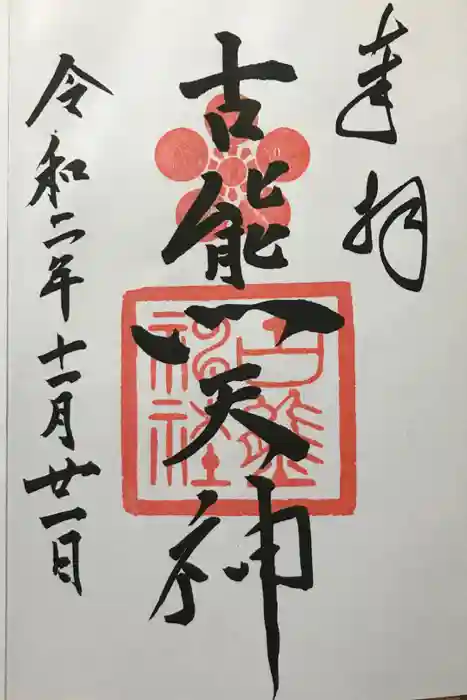 奉拝
古熊天神
古熊
神社
令和二年十一月廿一日